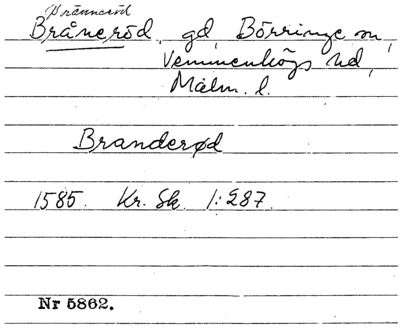 Bränneröd
Bråneröd, gd, Börringe sn,
Vemmenhögs hd,
Malm. l.
Branderød
1585. Kr. Sk. 1:287.
Nr 5862.